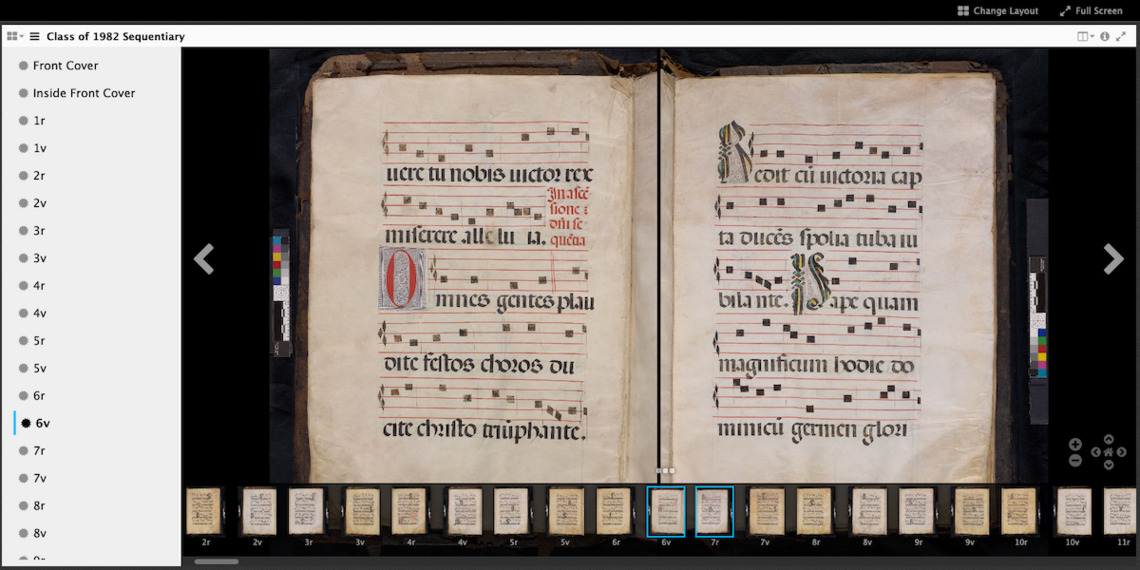 Change Layout
Full Screen
Class of 1982 Sequentiary
Front Cover
Inside Front Cover
1r
1v
2r
2v
3r
3v
4r
4v
5r
5v
6r
6v
7r
7v
8r
8v
9r
uere tu nobis uictor rex
In ascē
sione
dn̄i se
miserere .alle lu ia.
quētia
Omnes gentes plau
dite festos choros du
cite christo triūphante.
Redit cū uictoria cap
ta ducēs spolia tuba iu
bila nte. Pape quam
magnificum hodie do
minicū germen glori
2r
2v
3r
3v
4r
4v
5r
5v
6r
6v
7r
7v
8r
8v
9r
9v
10r
10v
11r